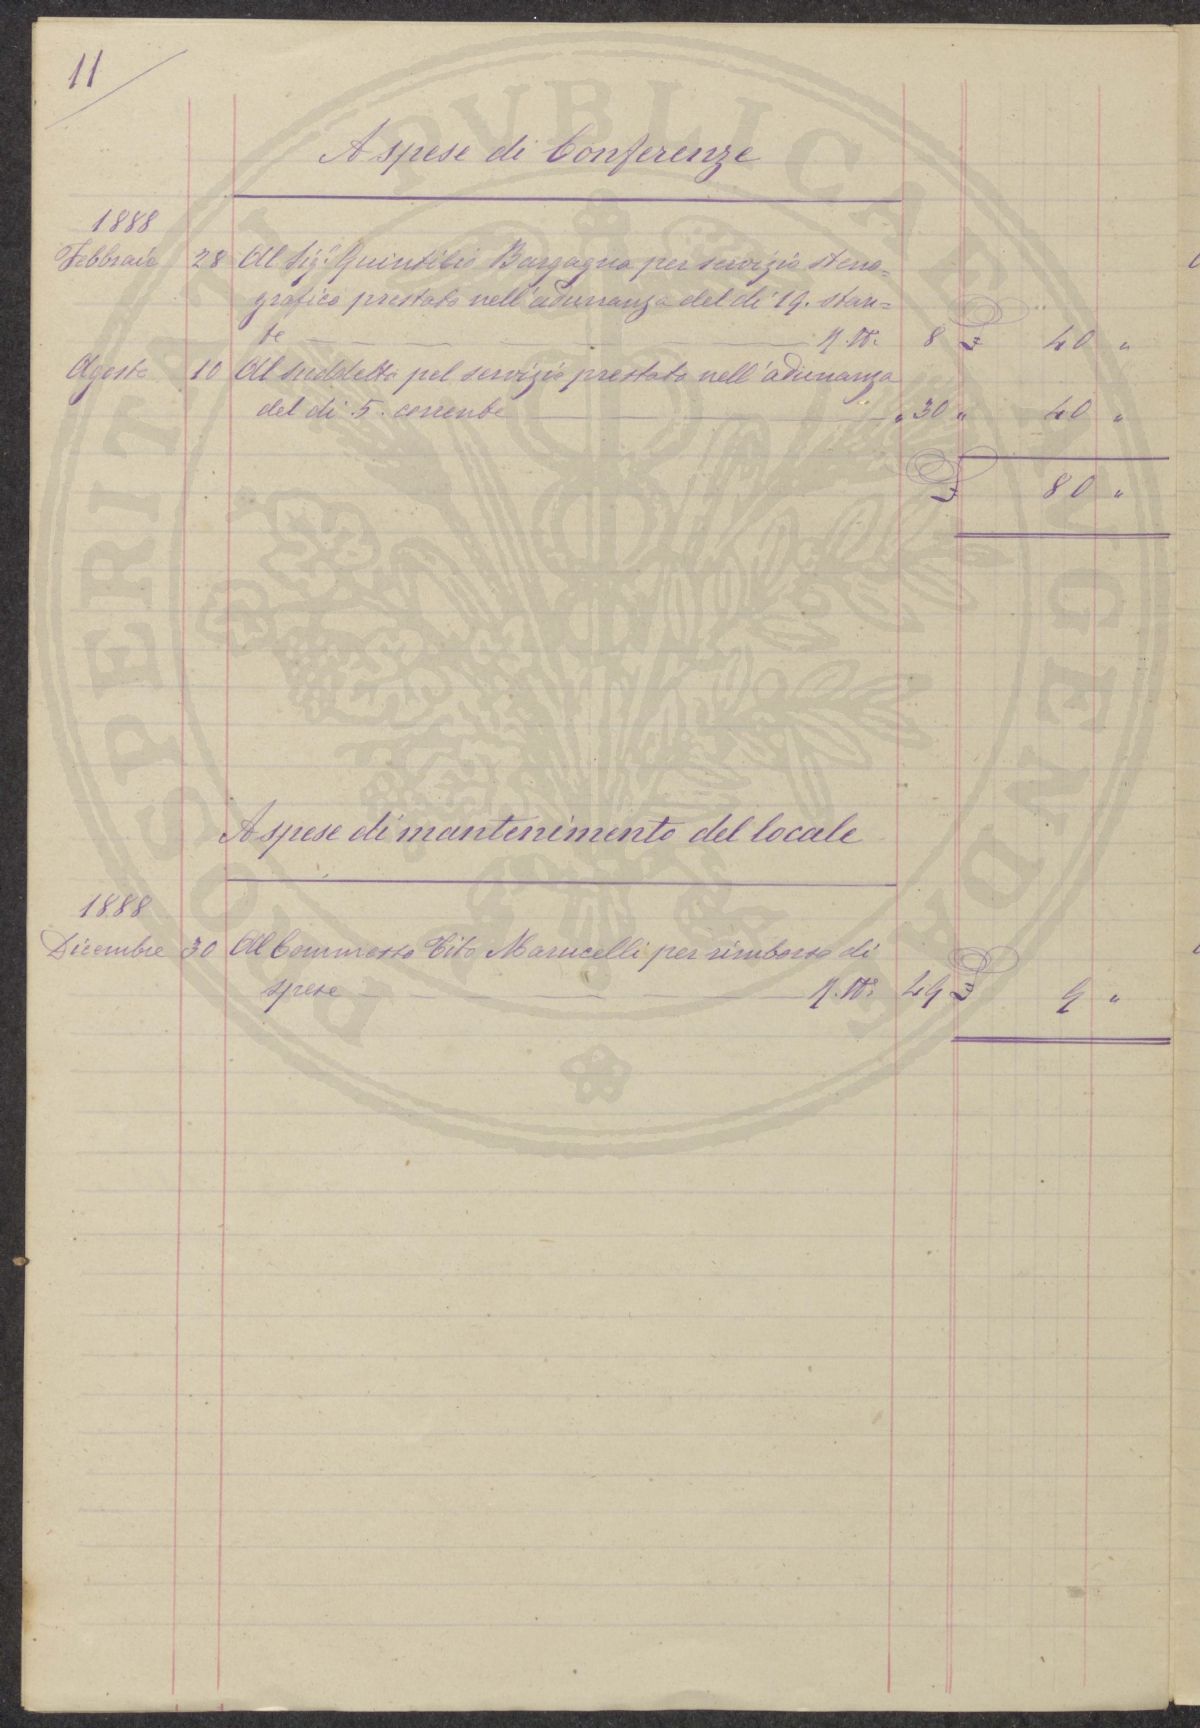 11
A spese di Conferenze
1888
Febbraio 28 Al Sig.r Quintilio Bargagna per servizio steno=
grafico prestato nell'adunanza del dì 19. stan=
te 8 £ 40 "
Agosto 10 Al suddetto pel servizio prestato nell'adunanza
del dì 5. corrente " 30 " 40 "
£ 80 "
A spese di mantenimento del locale
1888
Dicembre 30 Al Commesso Tito Marucelli per rimborso di
spese 49 £ 9 "
PROSPERITATI PVBLICAE AVGENDAE